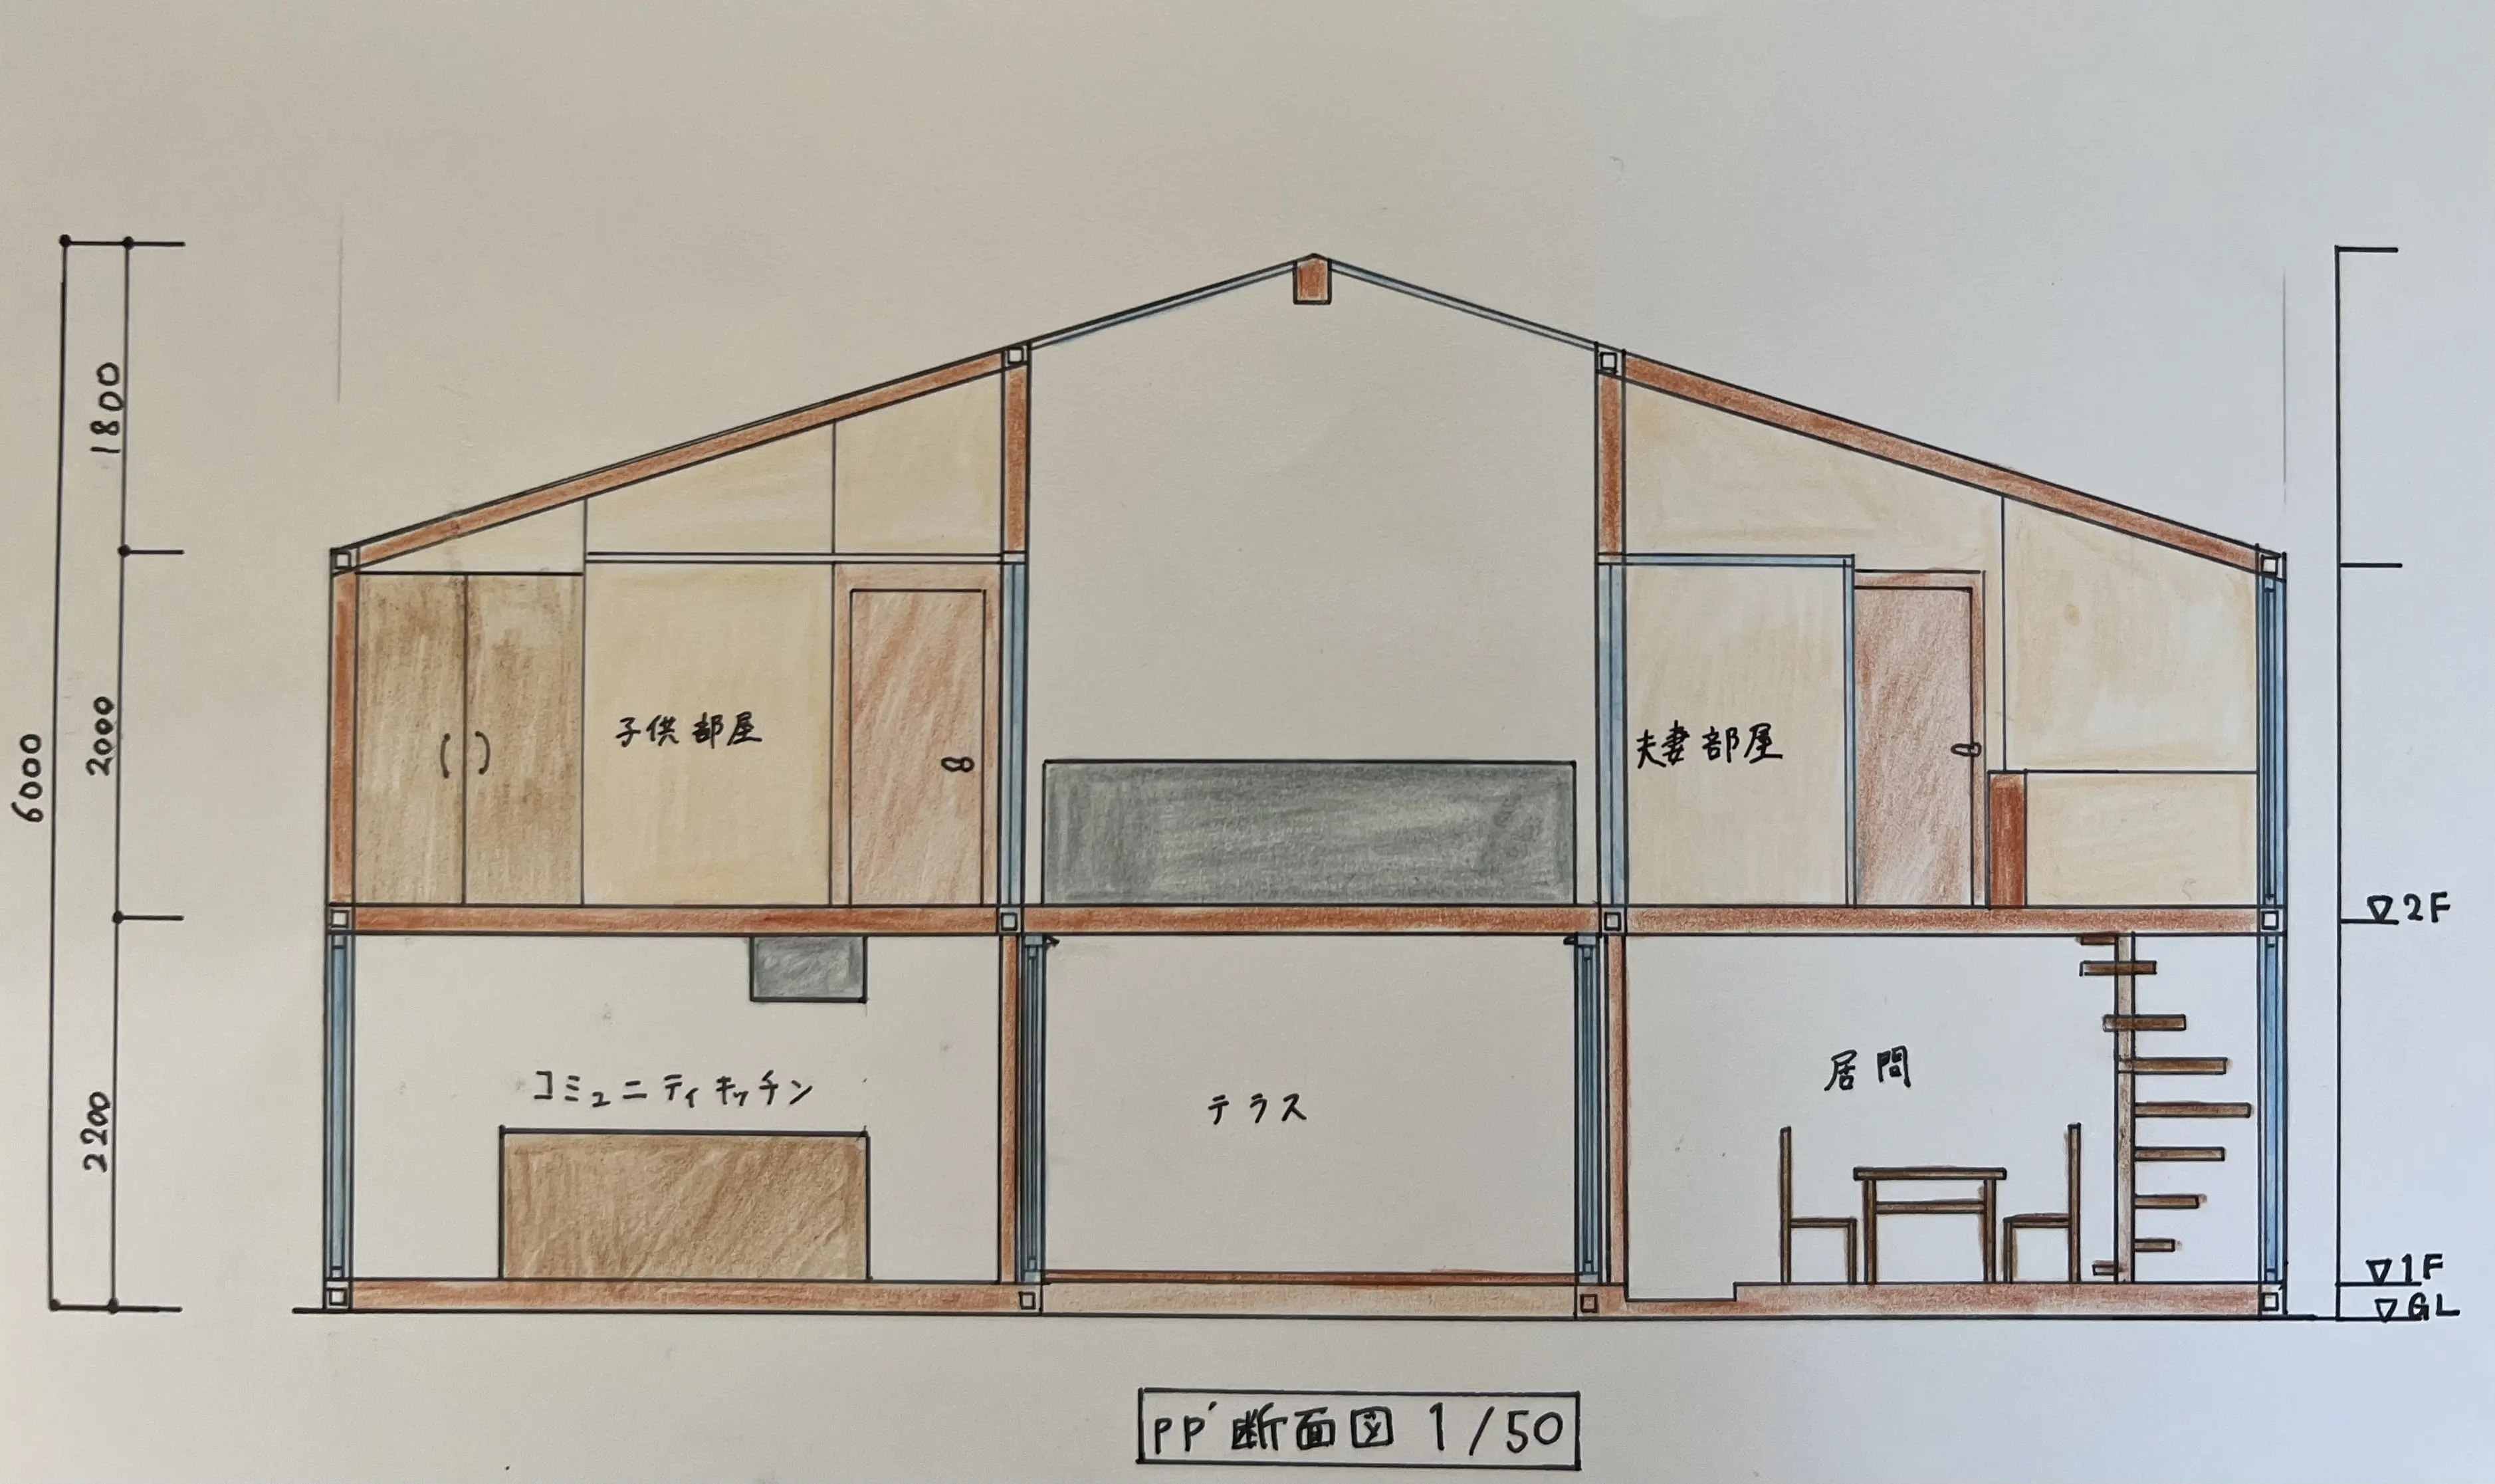 1800
6000
2000
2200
子供部屋
夫妻部屋
▽2F
コミュニティキッチン
テラス
居間
▽1F
▽GL
PP′断面図 1/50